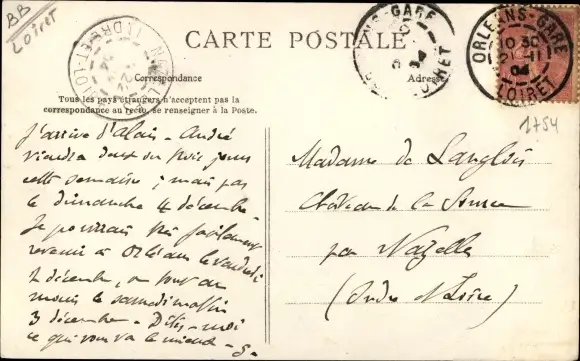 BB
Loiret
CARTE POSTALE
ORLEANS-GARE
10 30
21 - 11
04
LOIRET
GARE
LOIRET
Correspondance
Adresse
Tous les pays étrangers n'acceptent pas la
correspondance au recto, se renseigner à la Poste.
1754
J'arrive d'Alais - André
viendra deux ou trois jours
cette semaine ; mais pas
le dimanche 4 décembre -
Je pourrais très facilement
revenir à Orléans le vendredi
2 décembre, ou tout au
moins le samedi matin
3 décembre - Dites-moi
ce qui vous va le mieux - G.
Madame de Langlois
Château de la
par Nazelles
(Indre et Loire)